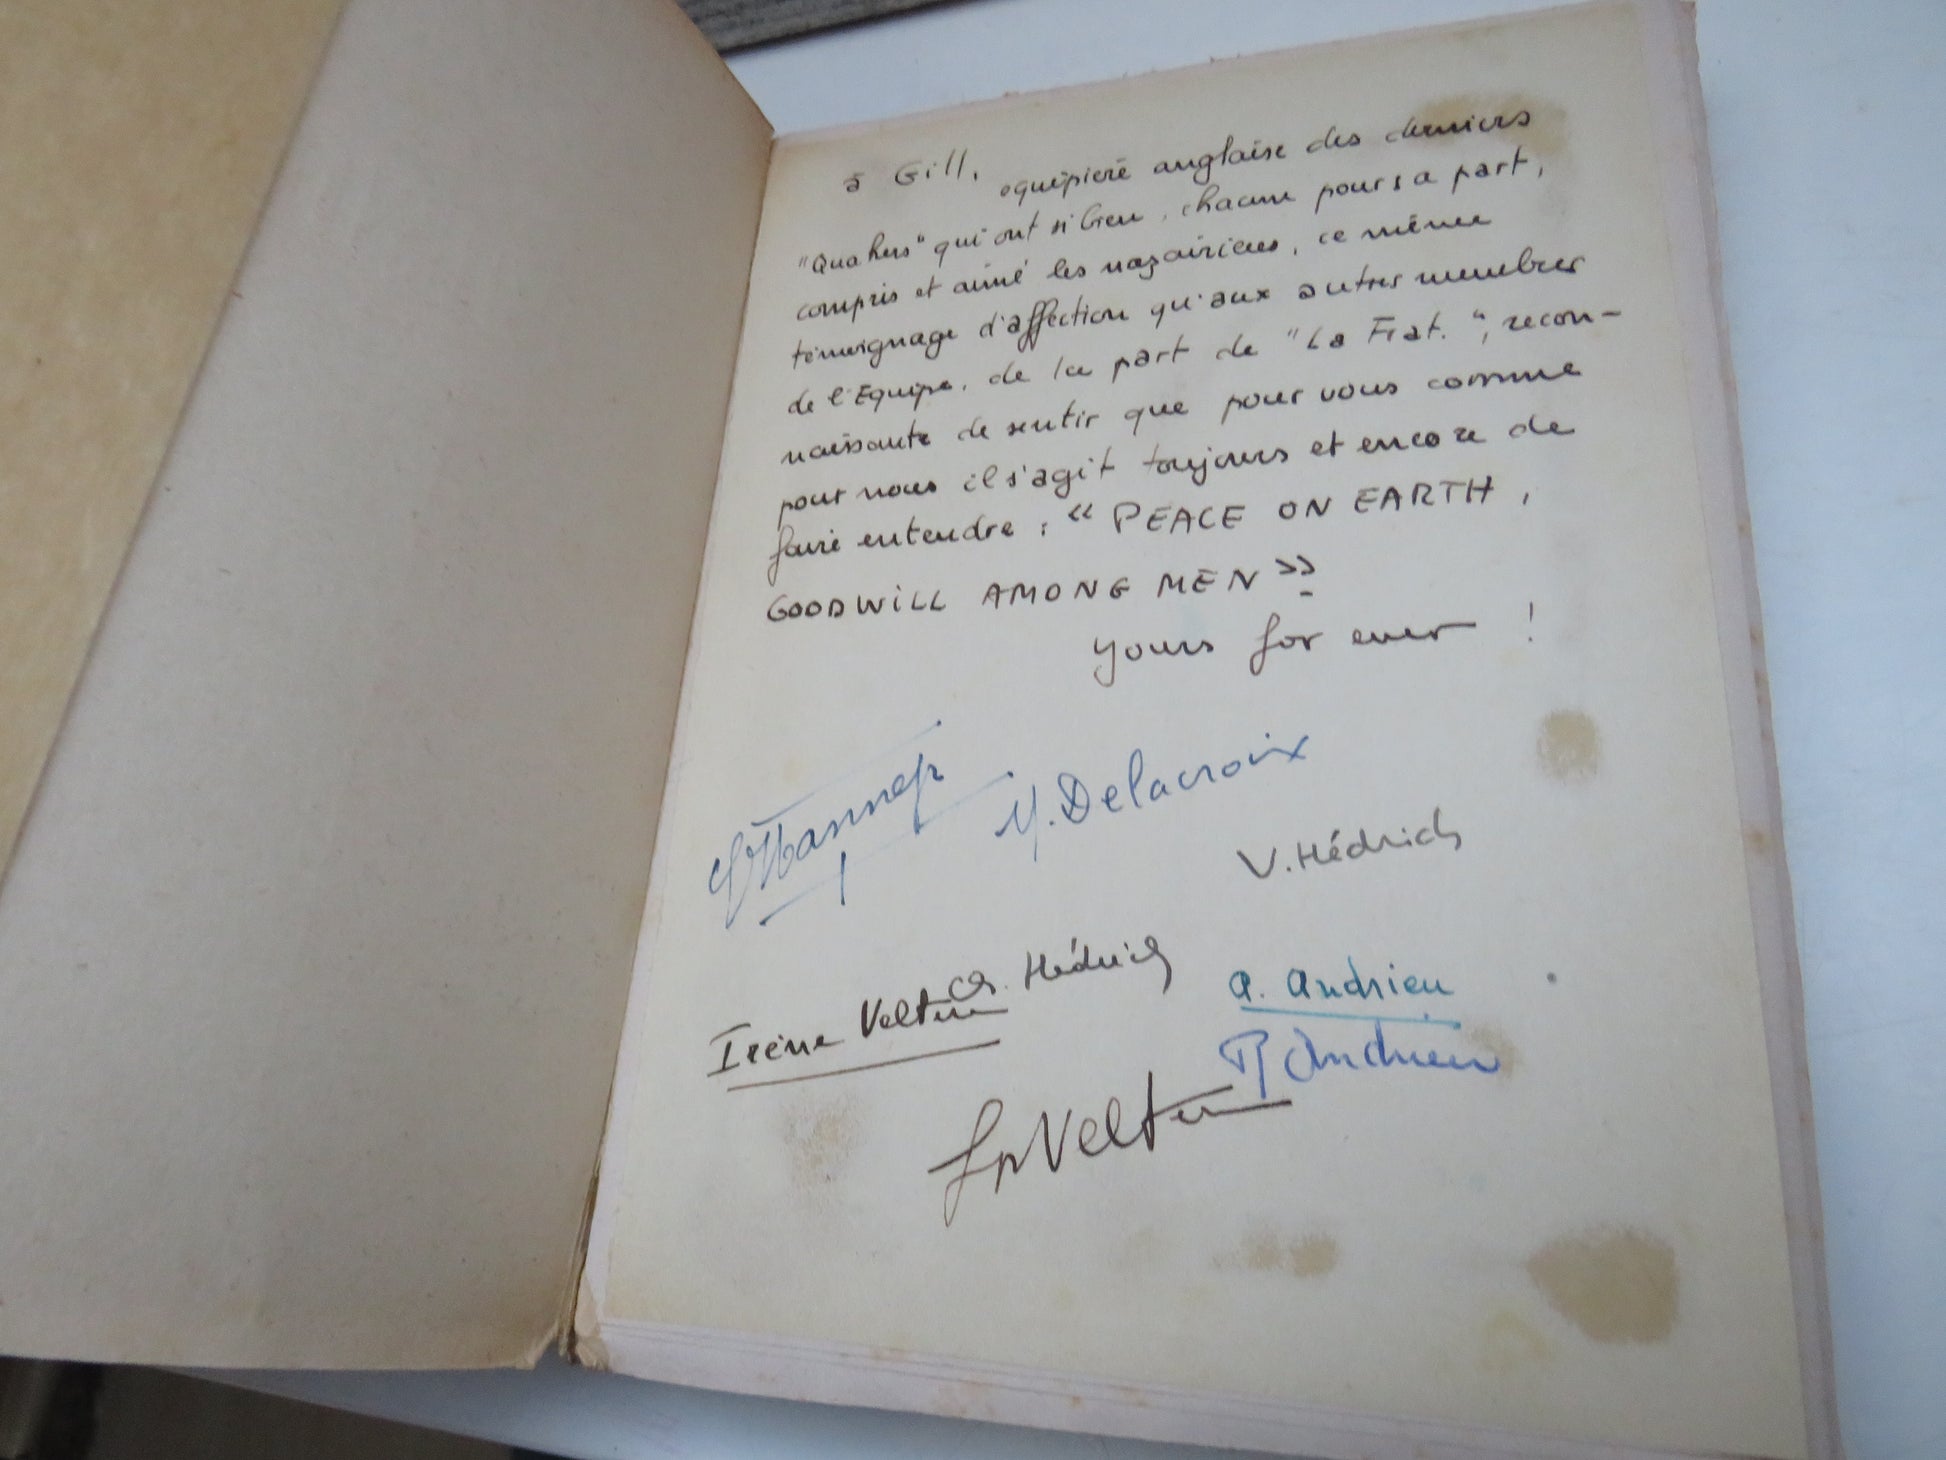 à Gill,
équipière anglaise des derniers
"Quakers" qui ont si bien, chacun pour sa part,
compris et aimé les nazairiens, ce même
témoignage d'affection qu'aux autres membres
de l'Equipe, de la part de "La Frat.", recon-
naissante de sentir que pour vous comme
pour nous il s'agit toujours et encore de
faire entendre : « PEACE ON EARTH,
GOODWILL AMONG MEN »
yours for ever !
Y. Delacroix
V. Hédrich
Ch. Hédrich
Irène Velten
A. Andrieu
P Andrieu
Velten